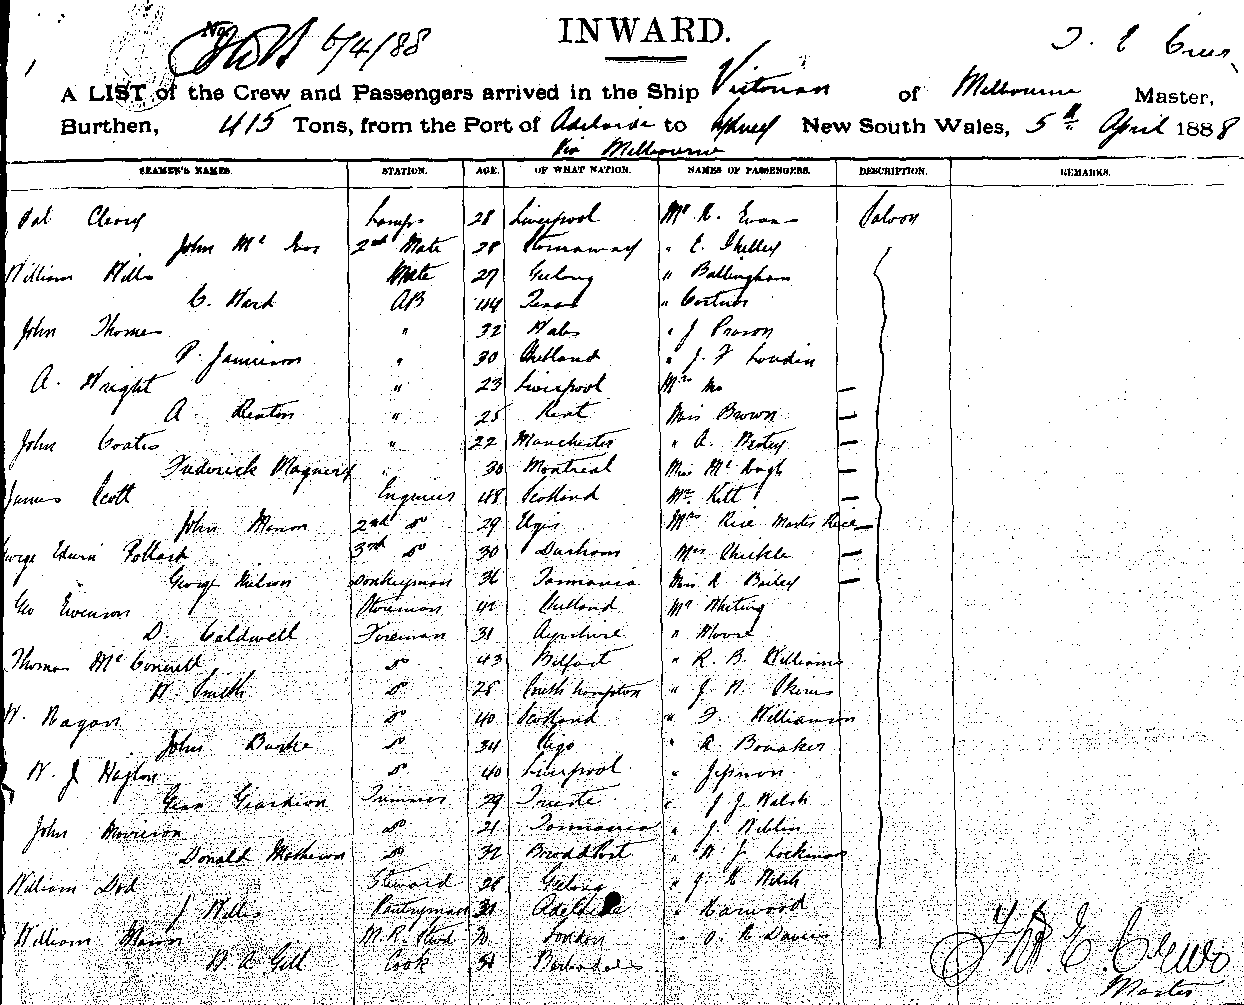 No. 6/4/88 INWARD. T. E. Crews
A LIST of the Crew and Passengers arrived in the Ship Victorian of Melbourne Master,
Burthen, 415 Tons, from the Port of Adelaide to Sydney New South Wales, 5th April 1888
Via Melbourne
SEAMEN'S NAMES. STATION. AGE. OF WHAT NATION. NAMES OF PASSENGERS. DESCRIPTION. REMARKS.
Pat Cleary Lamps 28 Liverpool Mr R. Evans Saloon
John Mc 2nd Mate 28 Stornaway " E. Skelley
William Wills Mate 27 Geelong " Ballingham
C. Ward AB 44 Texas "
John Thomas " 32 Wales " J
P. Jamieson " 30 Shetland " J. F
A. Wright " 23 Liverpool Mrs
A. Renton " 25 Kent Miss Brown —
John Coates " 22 Manchester " A. —
Frederick " 30 Montreal Miss Mc —
James Scott Engineer 48 Scotland Mr. Kitt —
John 2nd Do 29 Mrs Rice Master Rice —
George Edwin Pollock 3rd Do 30 Durham Mrs —
George Wilson Donkeyman 36 Tasmania Miss R Bailey —
Geo Evenson Storeman 42 Shetland Mr Whiting
D. Caldwell Fireman 31 Ayrshire " Moore
Thomas McConnell Do 43 Belfast " R. B. Williams
W. Smith Do 28 Southhampton " J. W.
W. Ragan Do 40 Scotland " F. Williamson
John Burke Do 34 " R. Bowaker
W. J Do 40 Liverpool " Jepson
Trimmer 29 Trieste " J J. Walsh
John Morrison Do 21 Tasmania " J.
Donald Do 32 " W. J.
William Dod Steward 26 Geelong " J. W. Welsh
J Willis Pantryman 31 Adelaide " Harwood
William M.R. Stwd London " O. R. Davies
W. A. Gill Cook Barbadoes
T. E. Crews
Master